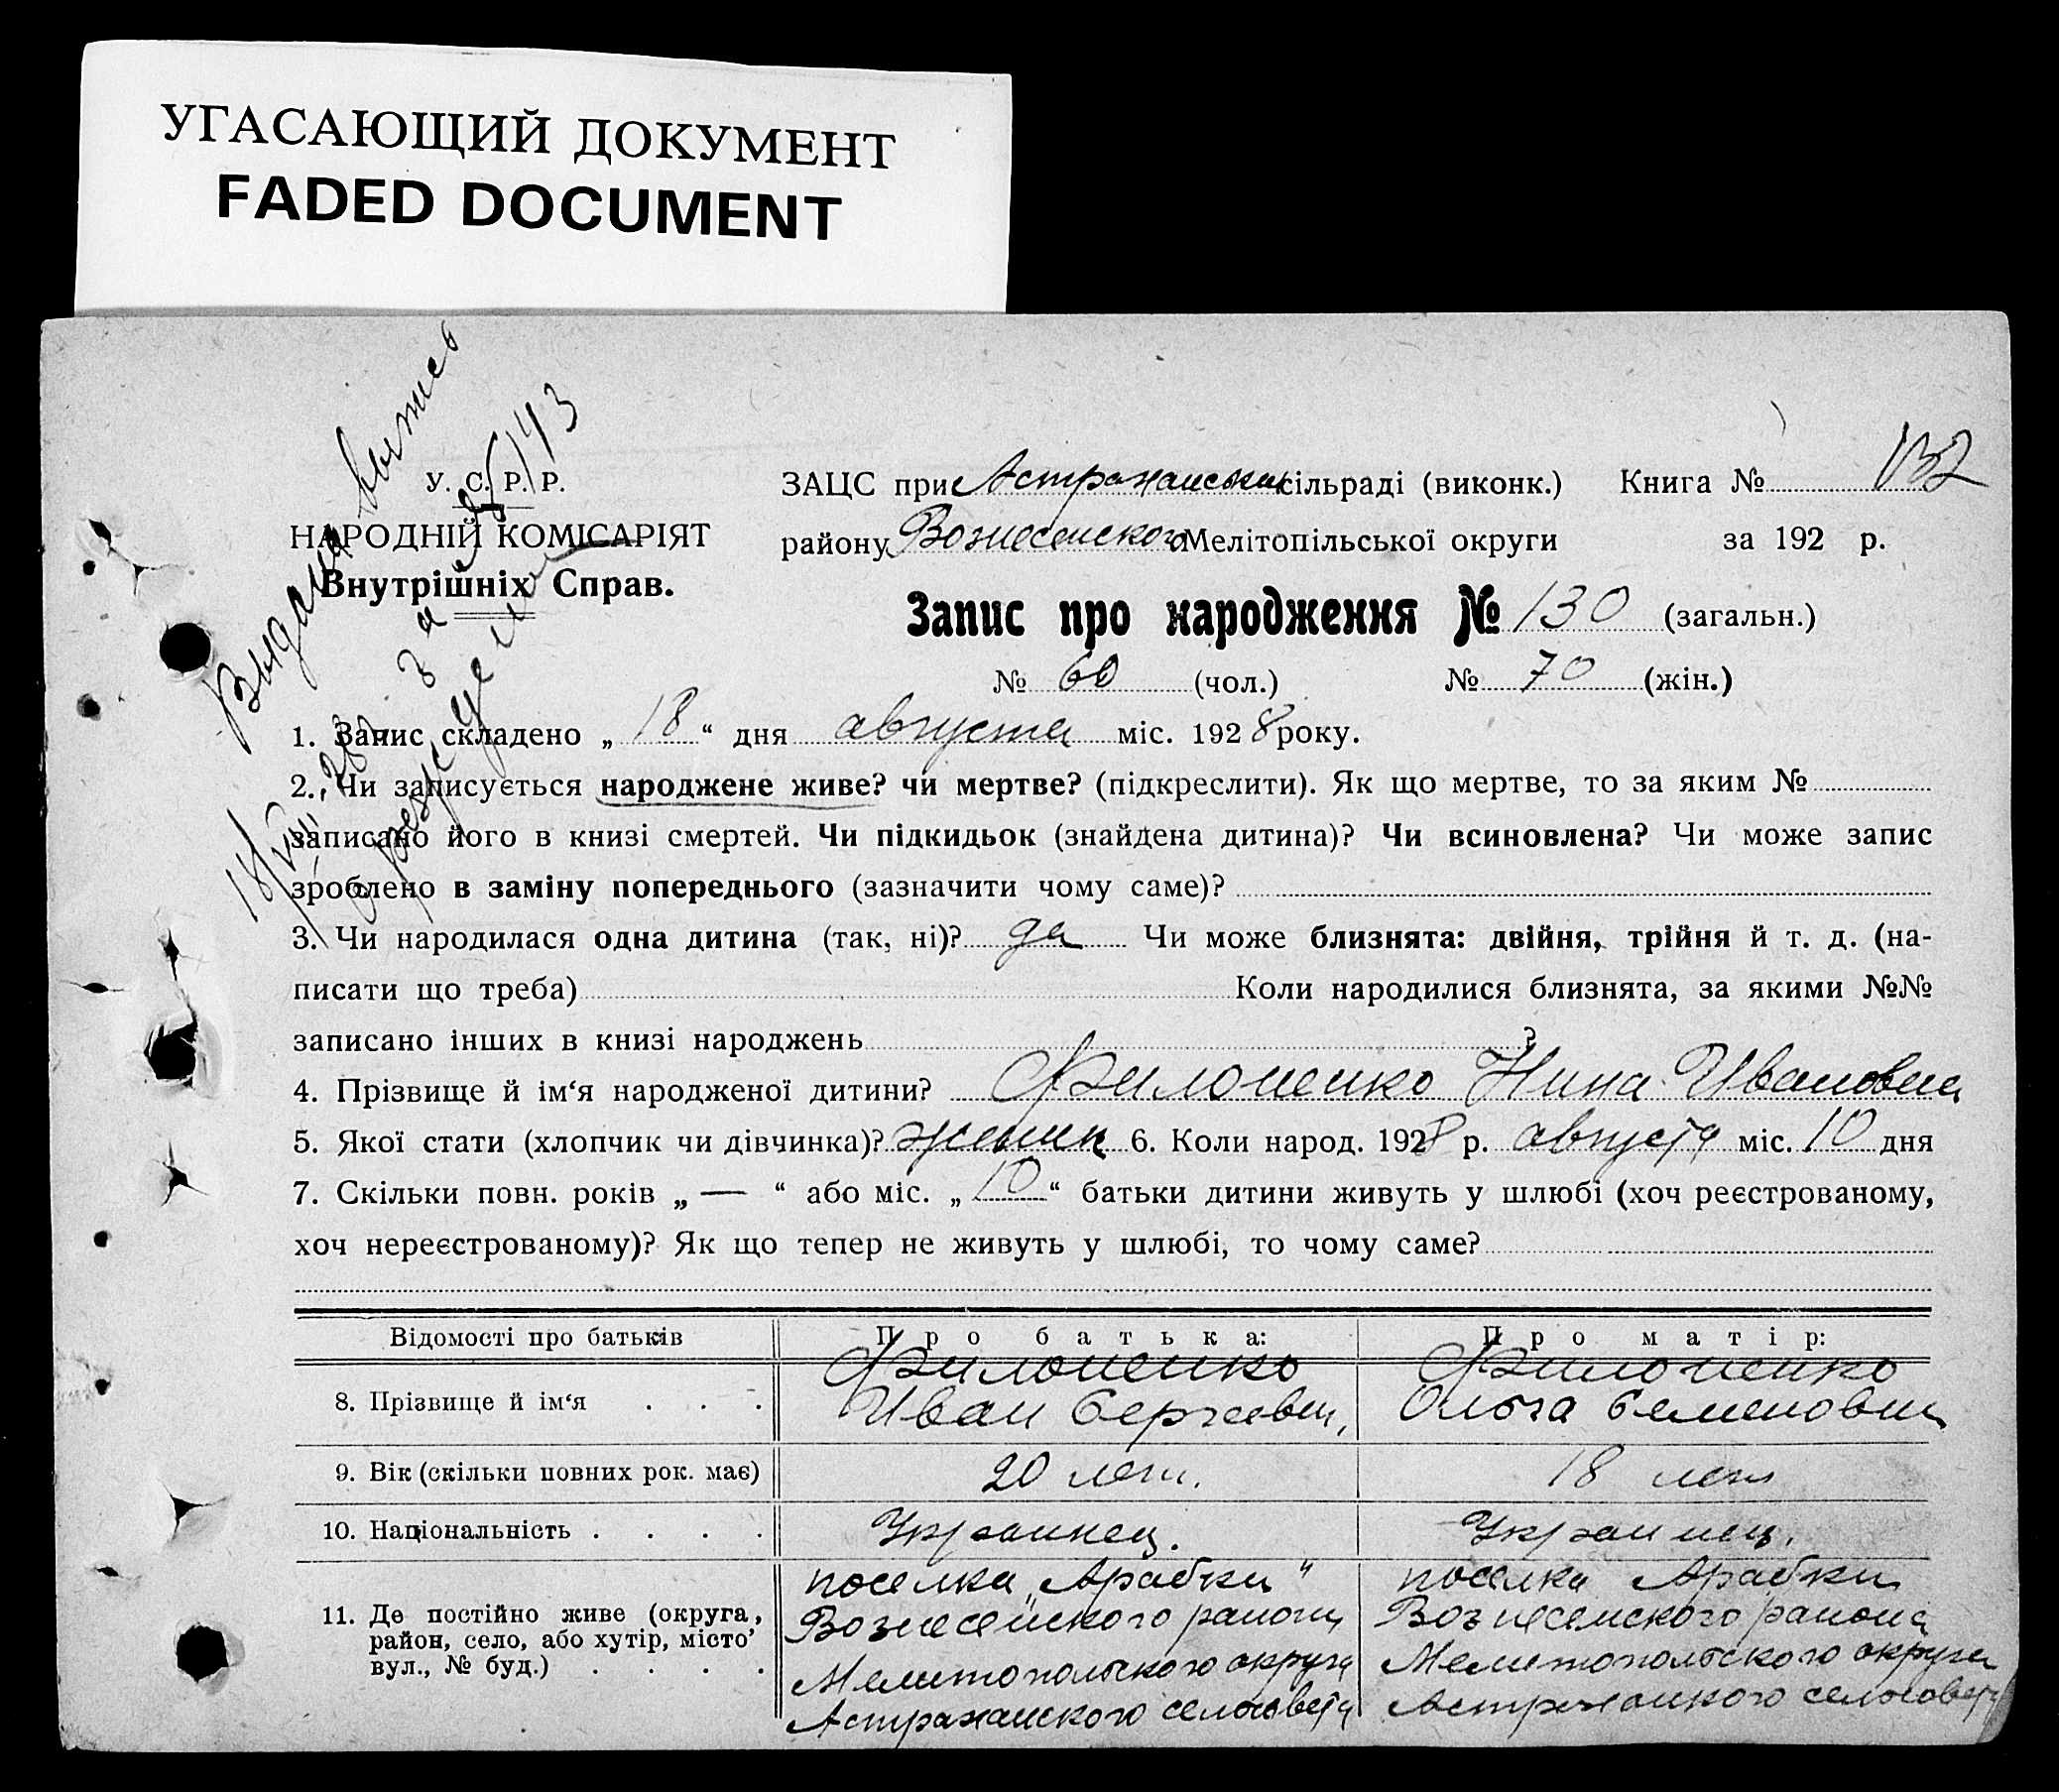 УГАСАЮЩИЙ ДОКУМЕНТ
FADED DOCUMENT
Выдана выпись
за № 85143
о рождении
18/VIII 28
У. С. Р. Р.
НАРОДНІЙ КОМІСАРІЯТ
Внутрішніх Справ.
ЗАЦС при Астраханськи сільраді (виконк.) Книга № 132
району Вознесенского Мелітопільської округи за 192 р.
Запис про народження № 130 (загальн.)
№ 60 (чол.) № 70 (жін.)
1. Запис складено „ 18 “ дня августа міс. 1928 року.
2. Чи записується народжене живе? чи мертве? (підкреслити). Як що мертве, то за яким №
записано його в книзі смертей. Чи підкидьок (знайдена дитина)? Чи всиновлена? Чи може запис
зроблено в заміну попереднього (зазначити чому саме)?
3. Чи народилася одна дитина (так, ні)? да Чи може близнята: двійня, трійня й т. д. (на-
писати що треба) Коли народилися близнята, за якими №№
записано інших в книзі народжень ?
4. Прізвище й ім‘я народженої дитини? Филоненко Нина Ивановна
5. Якої стати (хлопчик чи дівчинка)? женск 6. Коли народ. 1928 р. августа міс. 10 дня
7. Скільки повн. років „ — “ або міс. „ 10 “ батьки дитини живуть у шлюбі (хоч реєстрованому,
хоч нереєстрованому)? Як що тепер не живуть у шлюбі, то чому саме?
Відомості про батьків Про батька: Про матір:
8. Прізвище й ім‘я . . . Филоненко Филоненко
Иван Сергеевич, Ольга Семеновна
9. Вік (скільки повних рок. має) 20 лет. 18 лет
10. Національність . . . . Украинец. Украинец.
11. Де постійно живе (округа, район, село, або хутір, місто’ вул., № буд.) . . . .
поселка „Арабки“ поселка Арабки
Вознесенского района Вознесенского района
Мелитопольского округа Мелитопольского округа
Астраханского сельсовета Астраханского сельсовета